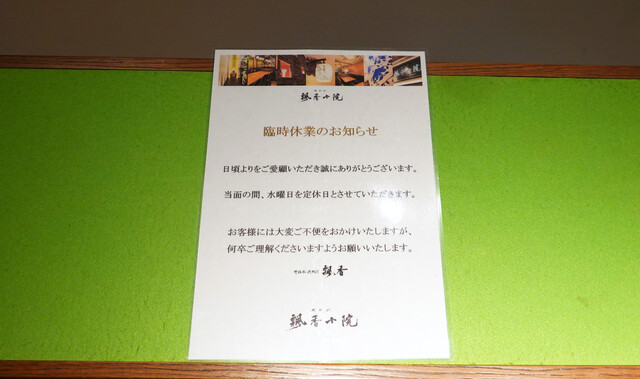 飄香小院
臨時休業のお知らせ
日頃よりをご愛顧いただき誠にありがとうございます。
当面の間、水曜日を定休日とさせていただきます。
お客様には大変ご不便をおかけいたしますが、
何卒ご理解くださいますようお願いいたします。
飄香
飄香小院